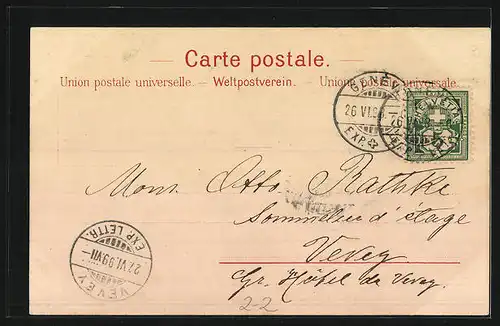 Carte postale.
Union postale universelle. — Weltpostverein. — Unione postale universale.
GENÈVE
26 VI.99
EXP.
HELVETIA
Mons. Otto Rathke
Sommelier d'étage
Vevey
Gr. Hôtel de Vevey.
VEVEY
27.VI.99.VII
EXP. LETTR.
2-2